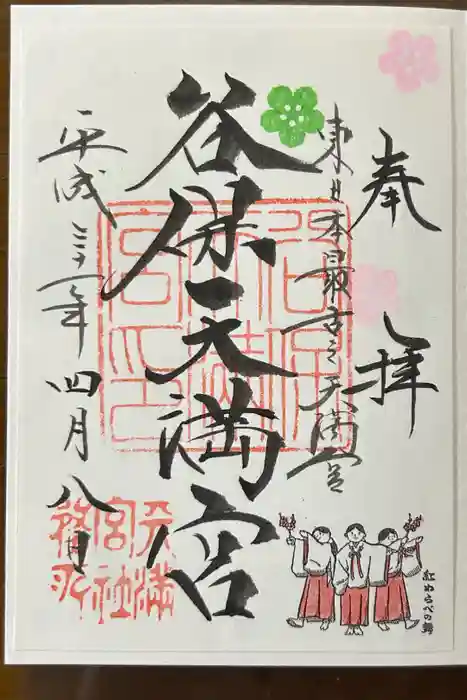 奉拝
東日本最古之天満宮
谷保天満宮
平成三十一年四月八日
天満
宮社
務所
紅わらべの舞